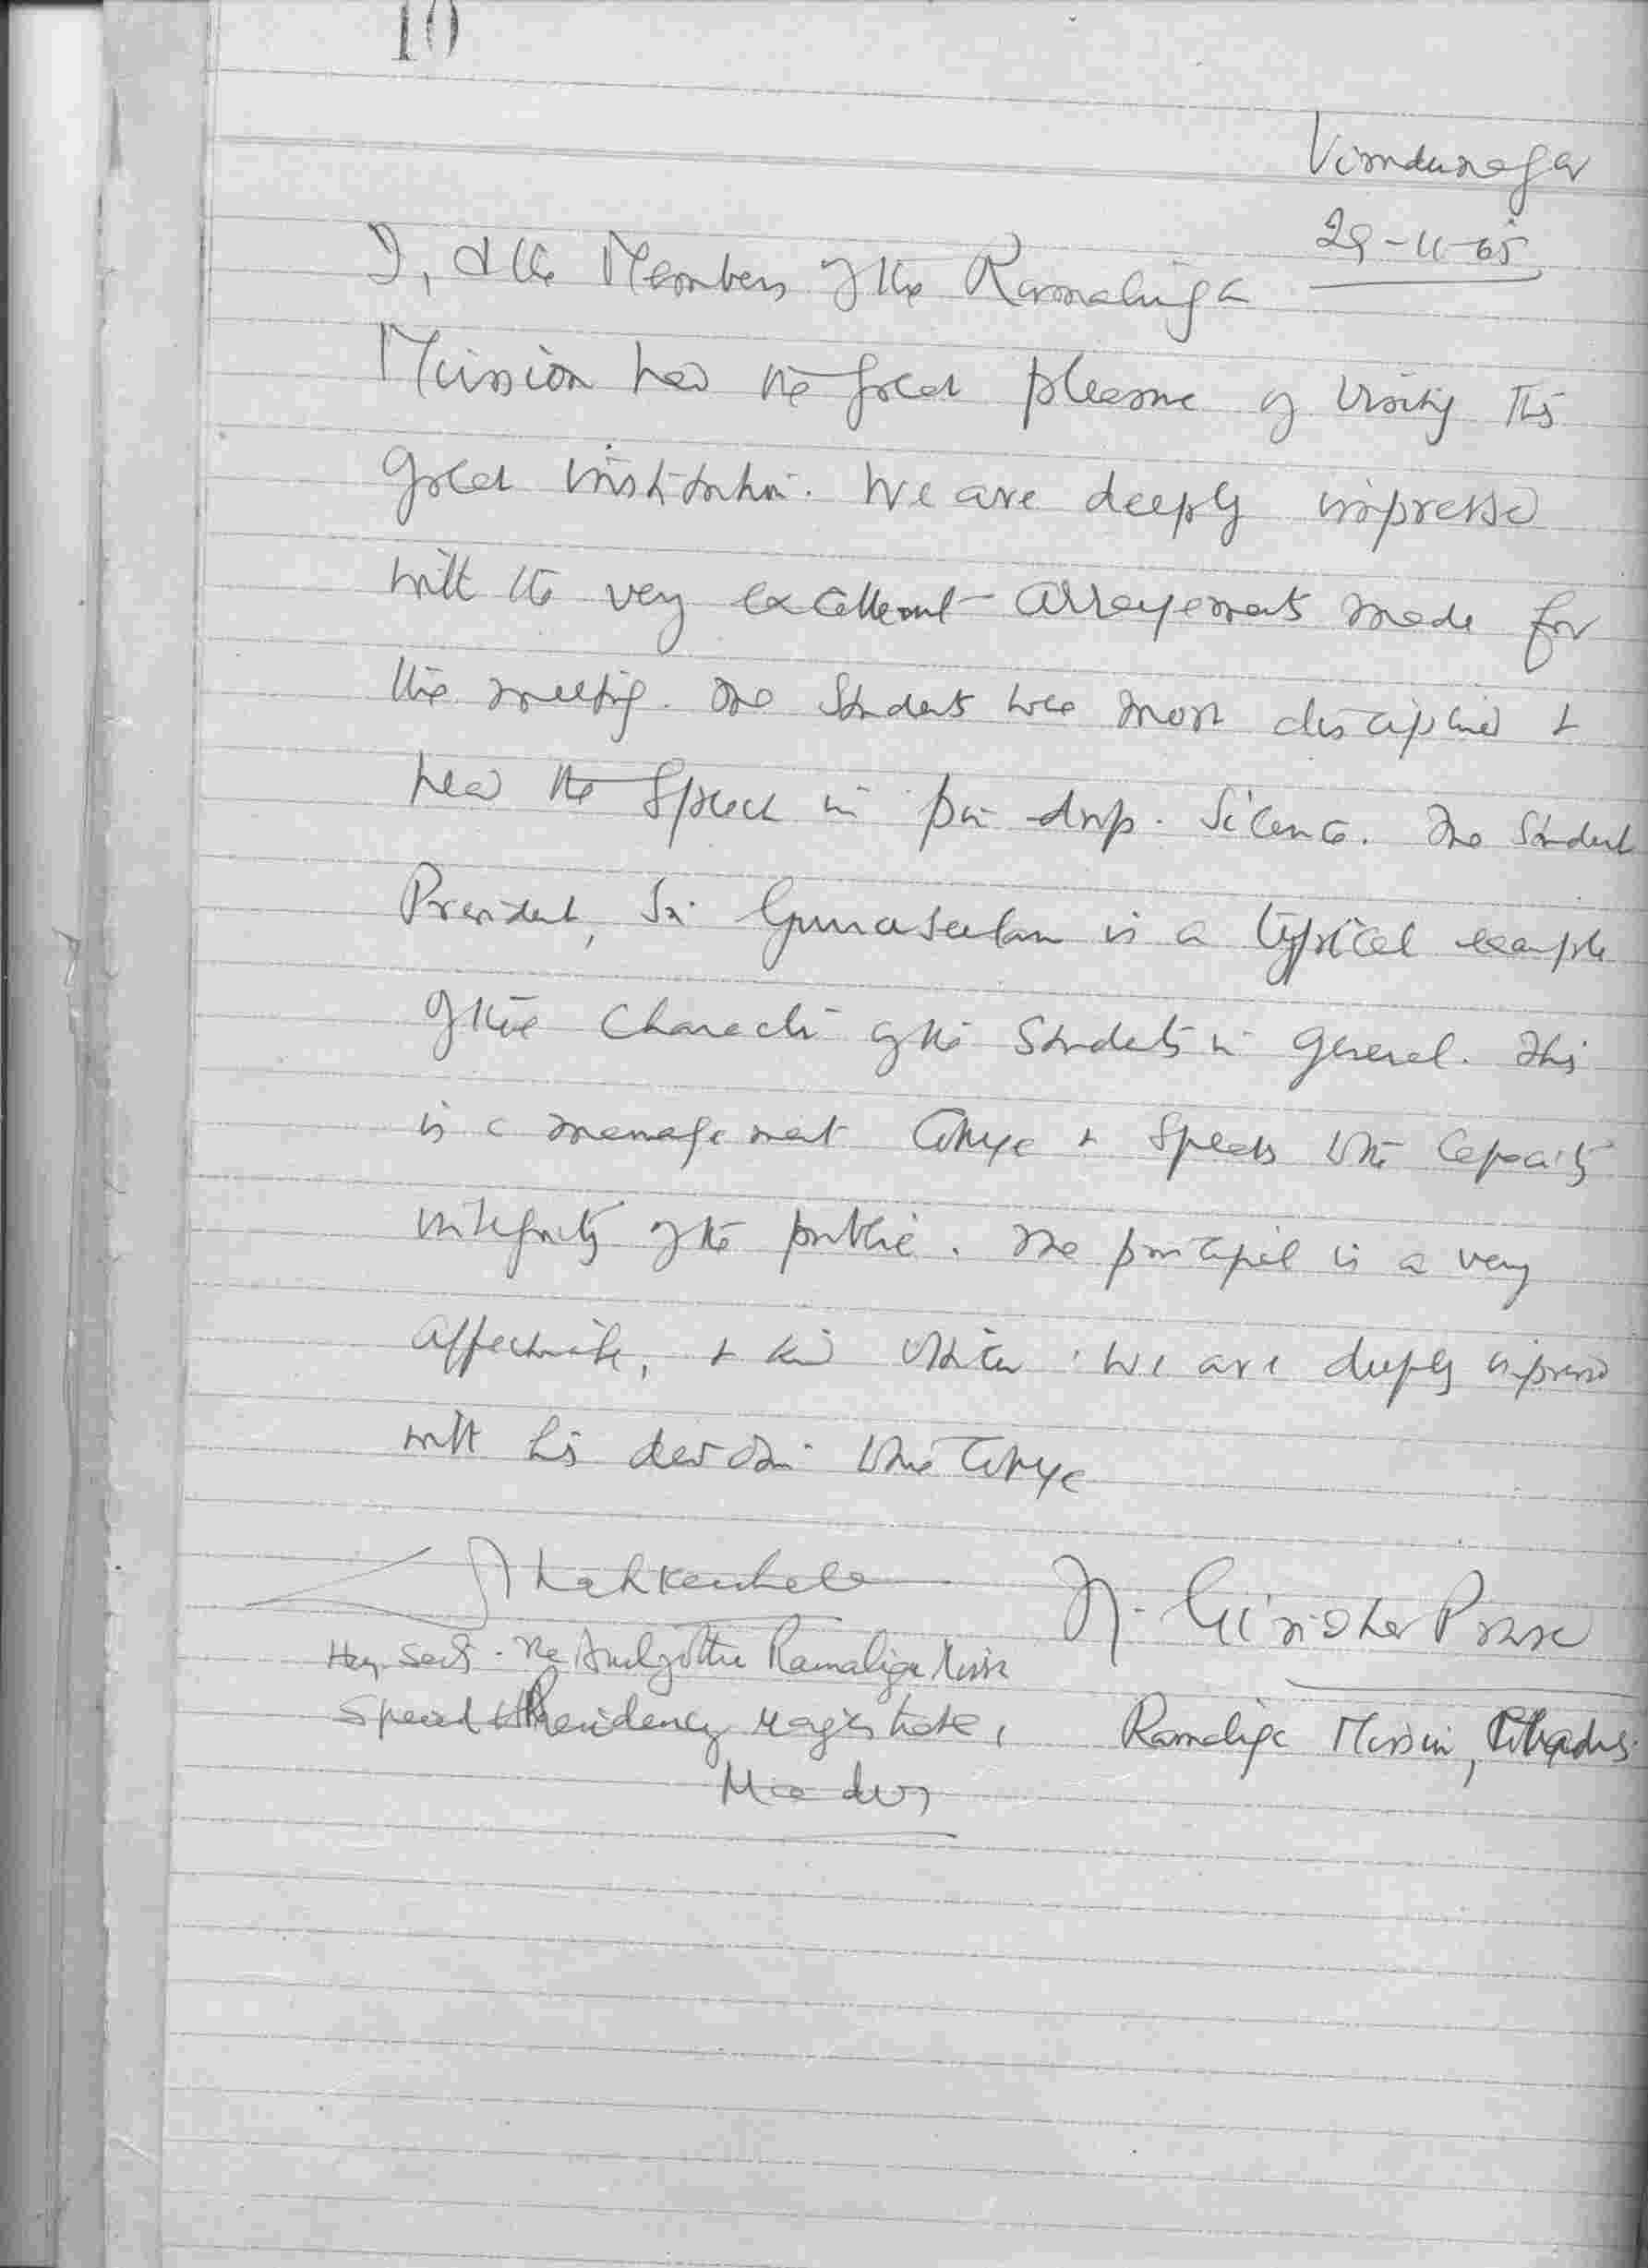 10
Virudunagar
29-11-65
I, & the Members of the Ramalinga
Mission had the great pleasure of visiting this
great institution. We are deeply impressed
with the very excellent arrangements made for
the meeting. The students were most disciplined &
heard the speech in pin-drop silence. The student
President, Sri Gunaseelan is a typical example
of the character of the students in general. This
is a management College & speaks to the capacity
integrity of the public. The principal is a very
affectionate, & kind We are deeply impressed
with his devotion to the College
Hon. Secy. Ramalinga Mission
Special Presidency Magistrate,
Madras
N. Giridhar Prasad
Ramalinga Mission, Madras.